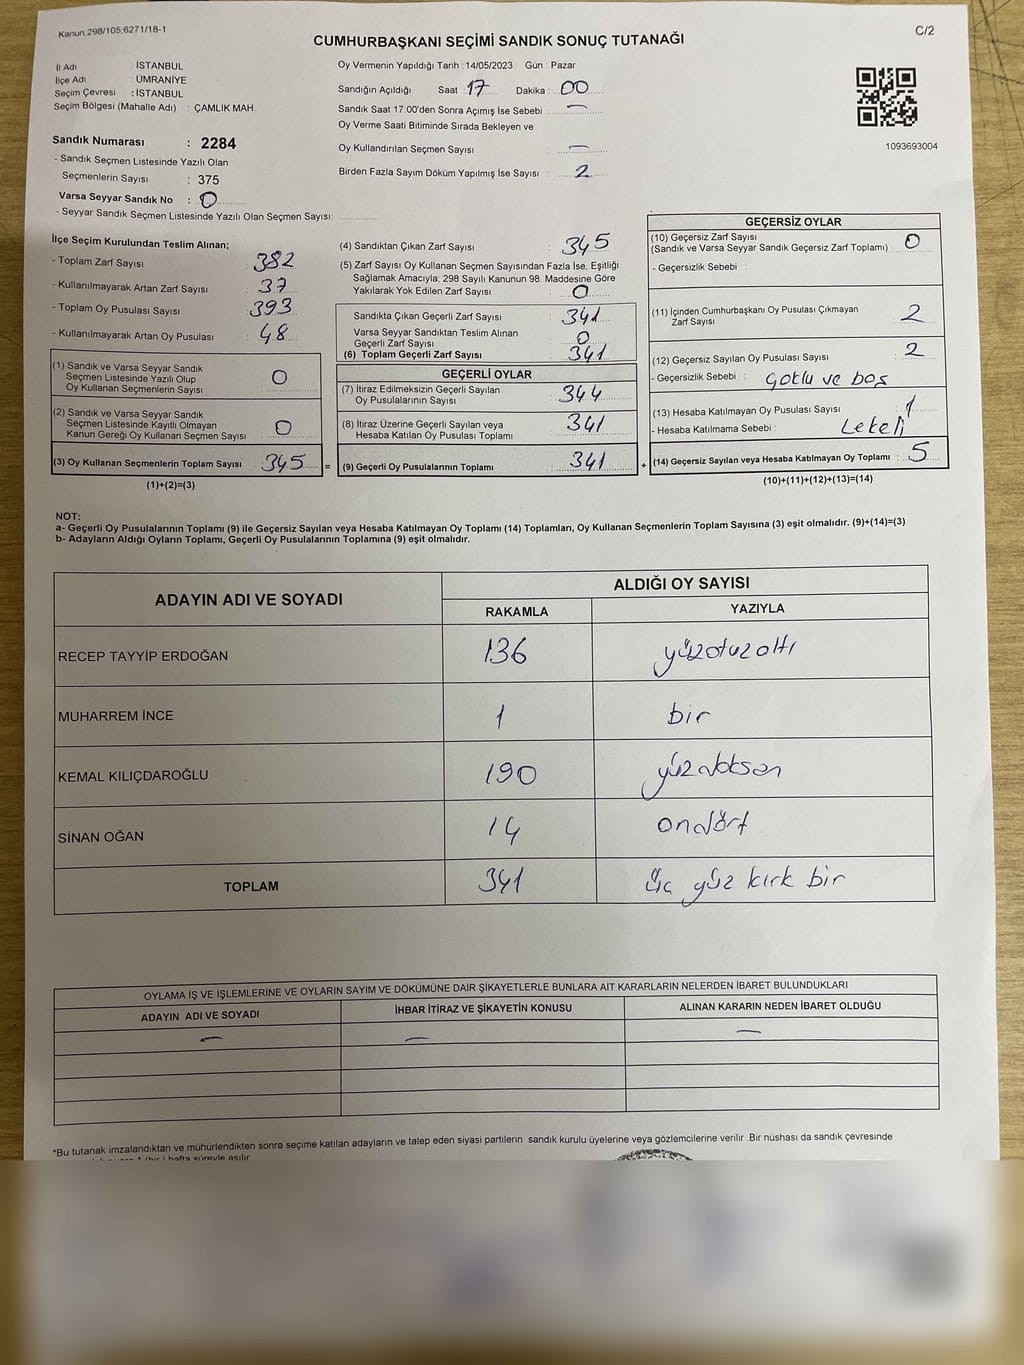 Kanun,298/105,6271/18-1
C/2
CUMHURBAŞKANI SEÇİMİ SANDIK SONUÇ TUTANAĞI
İl Adı : İSTANBUL
İlçe Adı : ÜMRANİYE
Seçim Çevresi : İSTANBUL
Seçim Bölgesi (Mahalle Adı) : ÇAMLIK MAH.
Sandık Numarası : 2284
- Sandık Seçmen Listesinde Yazılı Olan
Seçmenlerin Sayısı : 375
Varsa Seyyar Sandık No : 0
- Seyyar Sandık Seçmen Listesinde Yazılı Olan Seçmen Sayısı:
Oy Vermenin Yapıldığı Tarih : 14/05/2023 Gün : Pazar
Sandığın Açıldığı Saat : 17 Dakika : 00
Sandık Saat 17:00'den Sonra Açımış İse Sebebi : —
Oy Verme Saati Bitiminde Sırada Bekleyen ve
Oy Kullandırılan Seçmen Sayısı : —
Birden Fazla Sayım Döküm Yapılmış İse Sayısı : 2
1093693004
İlçe Seçim Kurulundan Teslim Alınan;
- Toplam Zarf Sayısı : 382
- Kullanılmayarak Artan Zarf Sayısı : 37
- Toplam Oy Pusulası Sayısı : 393
- Kullanılmayarak Artan Oy Pusulası : 48
(1) Sandık ve Varsa Seyyar Sandık
Seçmen Listesinde Yazılı Olup
Oy Kullanan Seçmenlerin Sayısı : 0
(2) Sandık ve Varsa Seyyar Sandık
Seçmen Listesinde Kayıtlı Olmayan
Kanun Gereği Oy Kullanan Seçmen Sayısı : 0
(3) Oy Kullanan Seçmenlerin Toplam Sayısı : 345
(1)+(2)=(3)
=
(4) Sandıktan Çıkan Zarf Sayısı : 345
(5) Zarf Sayısı Oy Kullanan Seçmen Sayısından Fazla İse, Eşitliği
Sağlamak Amacıyla; 298 Sayılı Kanunun 98. Maddesine Göre
Yakılarak Yok Edilen Zarf Sayısı : 0
Sandıkta Çıkan Geçerli Zarf Sayısı : 341
Varsa Seyyar Sandıktan Teslim Alınan
Geçerli Zarf Sayısı : 0
(6) Toplam Geçerli Zarf Sayısı : 341
GEÇERLİ OYLAR
(7) İtiraz Edilmeksizin Geçerli Sayılan
Oy Pusulalarının Sayısı : 344
(8) İtiraz Üzerine Geçerli Sayılan veya
Hesaba Katılan Oy Pusulası Toplamı : 341
(9) Geçerli Oy Pusulalarının Toplamı : 341
+
GEÇERSİZ OYLAR
(10) Geçersiz Zarf Sayısı
(Sandık ve Varsa Seyyar Sandık Geçersiz Zarf Toplamı) : 0
- Geçersizlik Sebebi :
(11) İçinden Cumhurbaşkanı Oy Pusulası Çıkmayan
Zarf Sayısı : 2
(12) Geçersiz Sayılan Oy Pusulası Sayısı : 2
- Geçersizlik Sebebi : çoklu ve boş
(13) Hesaba Katılmayan Oy Pusulası Sayısı : 1
- Hesaba Katılmama Sebebi : Lekeli
(14) Geçersiz Sayılan veya Hesaba Katılmayan Oy Toplamı : 5
(10)+(11)+(12)+(13)=(14)
NOT:
a- Geçerli Oy Pusulalarının Toplamı (9) ile Geçersiz Sayılan veya Hesaba Katılmayan Oy Toplamı (14) Toplamları, Oy Kullanan Seçmenlerin Toplam Sayısına (3) eşit olmalıdır. (9)+(14)=(3)
b- Adayların Aldığı Oyların Toplamı, Geçerli Oy Pusulalarının Toplamına (9) eşit olmalıdır.
ADAYIN ADI VE SOYADI
ALDIĞI OY SAYISI
RAKAMLA YAZIYLA
RECEP TAYYİP ERDOĞAN 136 yüzotuzaltı
MUHARREM İNCE 1 bir
KEMAL KILIÇDAROĞLU 190 yüzdoksan
SİNAN OĞAN 14 ondört
TOPLAM 341 üç yüz kırk bir
OYLAMA İŞ VE İŞLEMLERİNE VE OYLARIN SAYIM VE DÖKÜMÜNE DAİR ŞİKAYETLERLE BUNLARA AİT KARARLARIN NELERDEN İBARET BULUNDUKLARI
ADAYIN ADI VE SOYADI İHBAR İTİRAZ VE ŞİKAYETİN KONUSU ALINAN KARARIN NEDEN İBARET OLDUĞU
— — —
*Bu tutanak imzalandıktan ve mühürlendikten sonra seçime katılan adayların ve talep eden siyasi partilerin sandık kurulu üyelerine veya gözlemcilerine verilir .Bir nüshası da sandık çevresinde
1 (bir ) hafta süreyle asılır